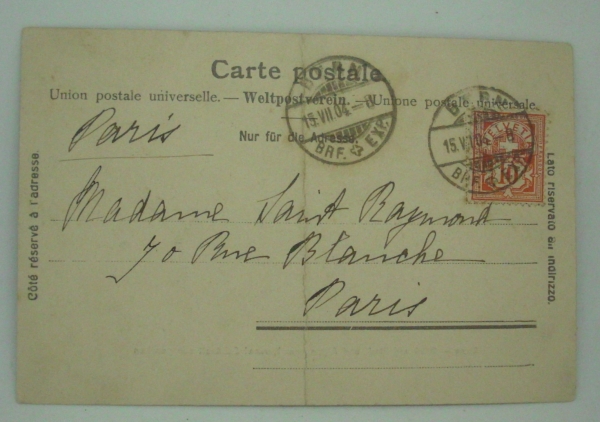 Carte postale.
Union postale universelle. — Weltpostverein. — Unione postale universale.
Nur für die Adresse.
Côté réservé à l'adresse.
Lato riservato all' indirizzo.
BERN
15.VII.04.-IV
BRF. EXP.
BERN
15.VII.04.
BRF.
HELVETIA
10
Paris
Madame Saint Raymond
70 Rue Blanche
Paris